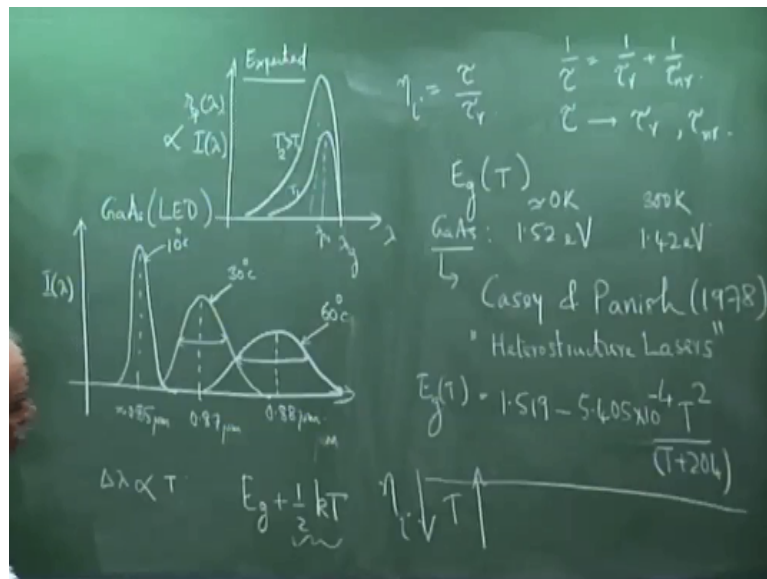 Expected
∝ I(λ)
T₂>T₁
T₁
λ
GaAs (LED)
I(λ)
10°C
30°C
60°C
≈0.85μm 0.87μm 0.88μm
Δλ ∝ T
E_g + 1/2 kT
η_i ↓ T ↑
η_i = τ/τ_r
1/τ = 1/τ_r + 1/τ_nr.
τ → τ_r, τ_nr.
E_g(T)
≈0K 300K
GaAs: 1.52 eV 1.42 eV
Casey & Panish (1978)
"Heterostructure Lasers"
E_g(T) = 1.519 – 5.405×10⁻⁴ T²/(T+204)